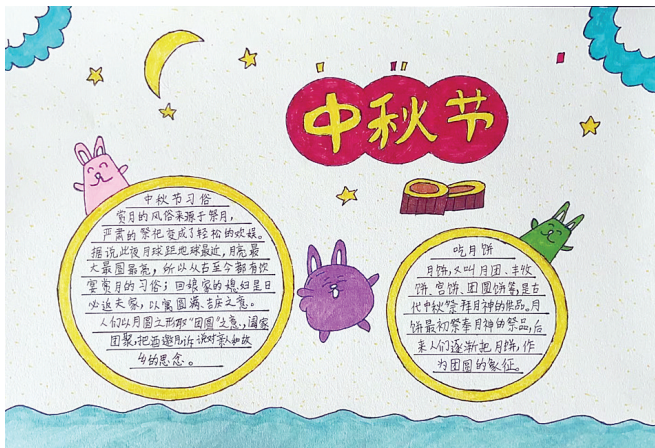 中秋节
中秋节习俗
赏月的风俗来源于祭月，
严肃的祭祀变成了轻松的欢娱。
据说此夜月球距地球最近，月亮最
大最圆最亮，所以从古至今都有饮
宴赏月的习俗；回娘家的媳妇是日
必返夫家，以寓圆满、吉庆之意。
人们以月圆之形取"团圆"之意，阖家
团聚，把酒邀月，诉说对亲人和故
乡的思念。
吃月饼
月饼，又叫月团、丰收
饼、宫饼、团圆饼等，是古
代中秋祭拜月神的供品。月
饼最初祭奉月神的祭品，后
来人们逐渐把月饼，作
为团圆的象征。